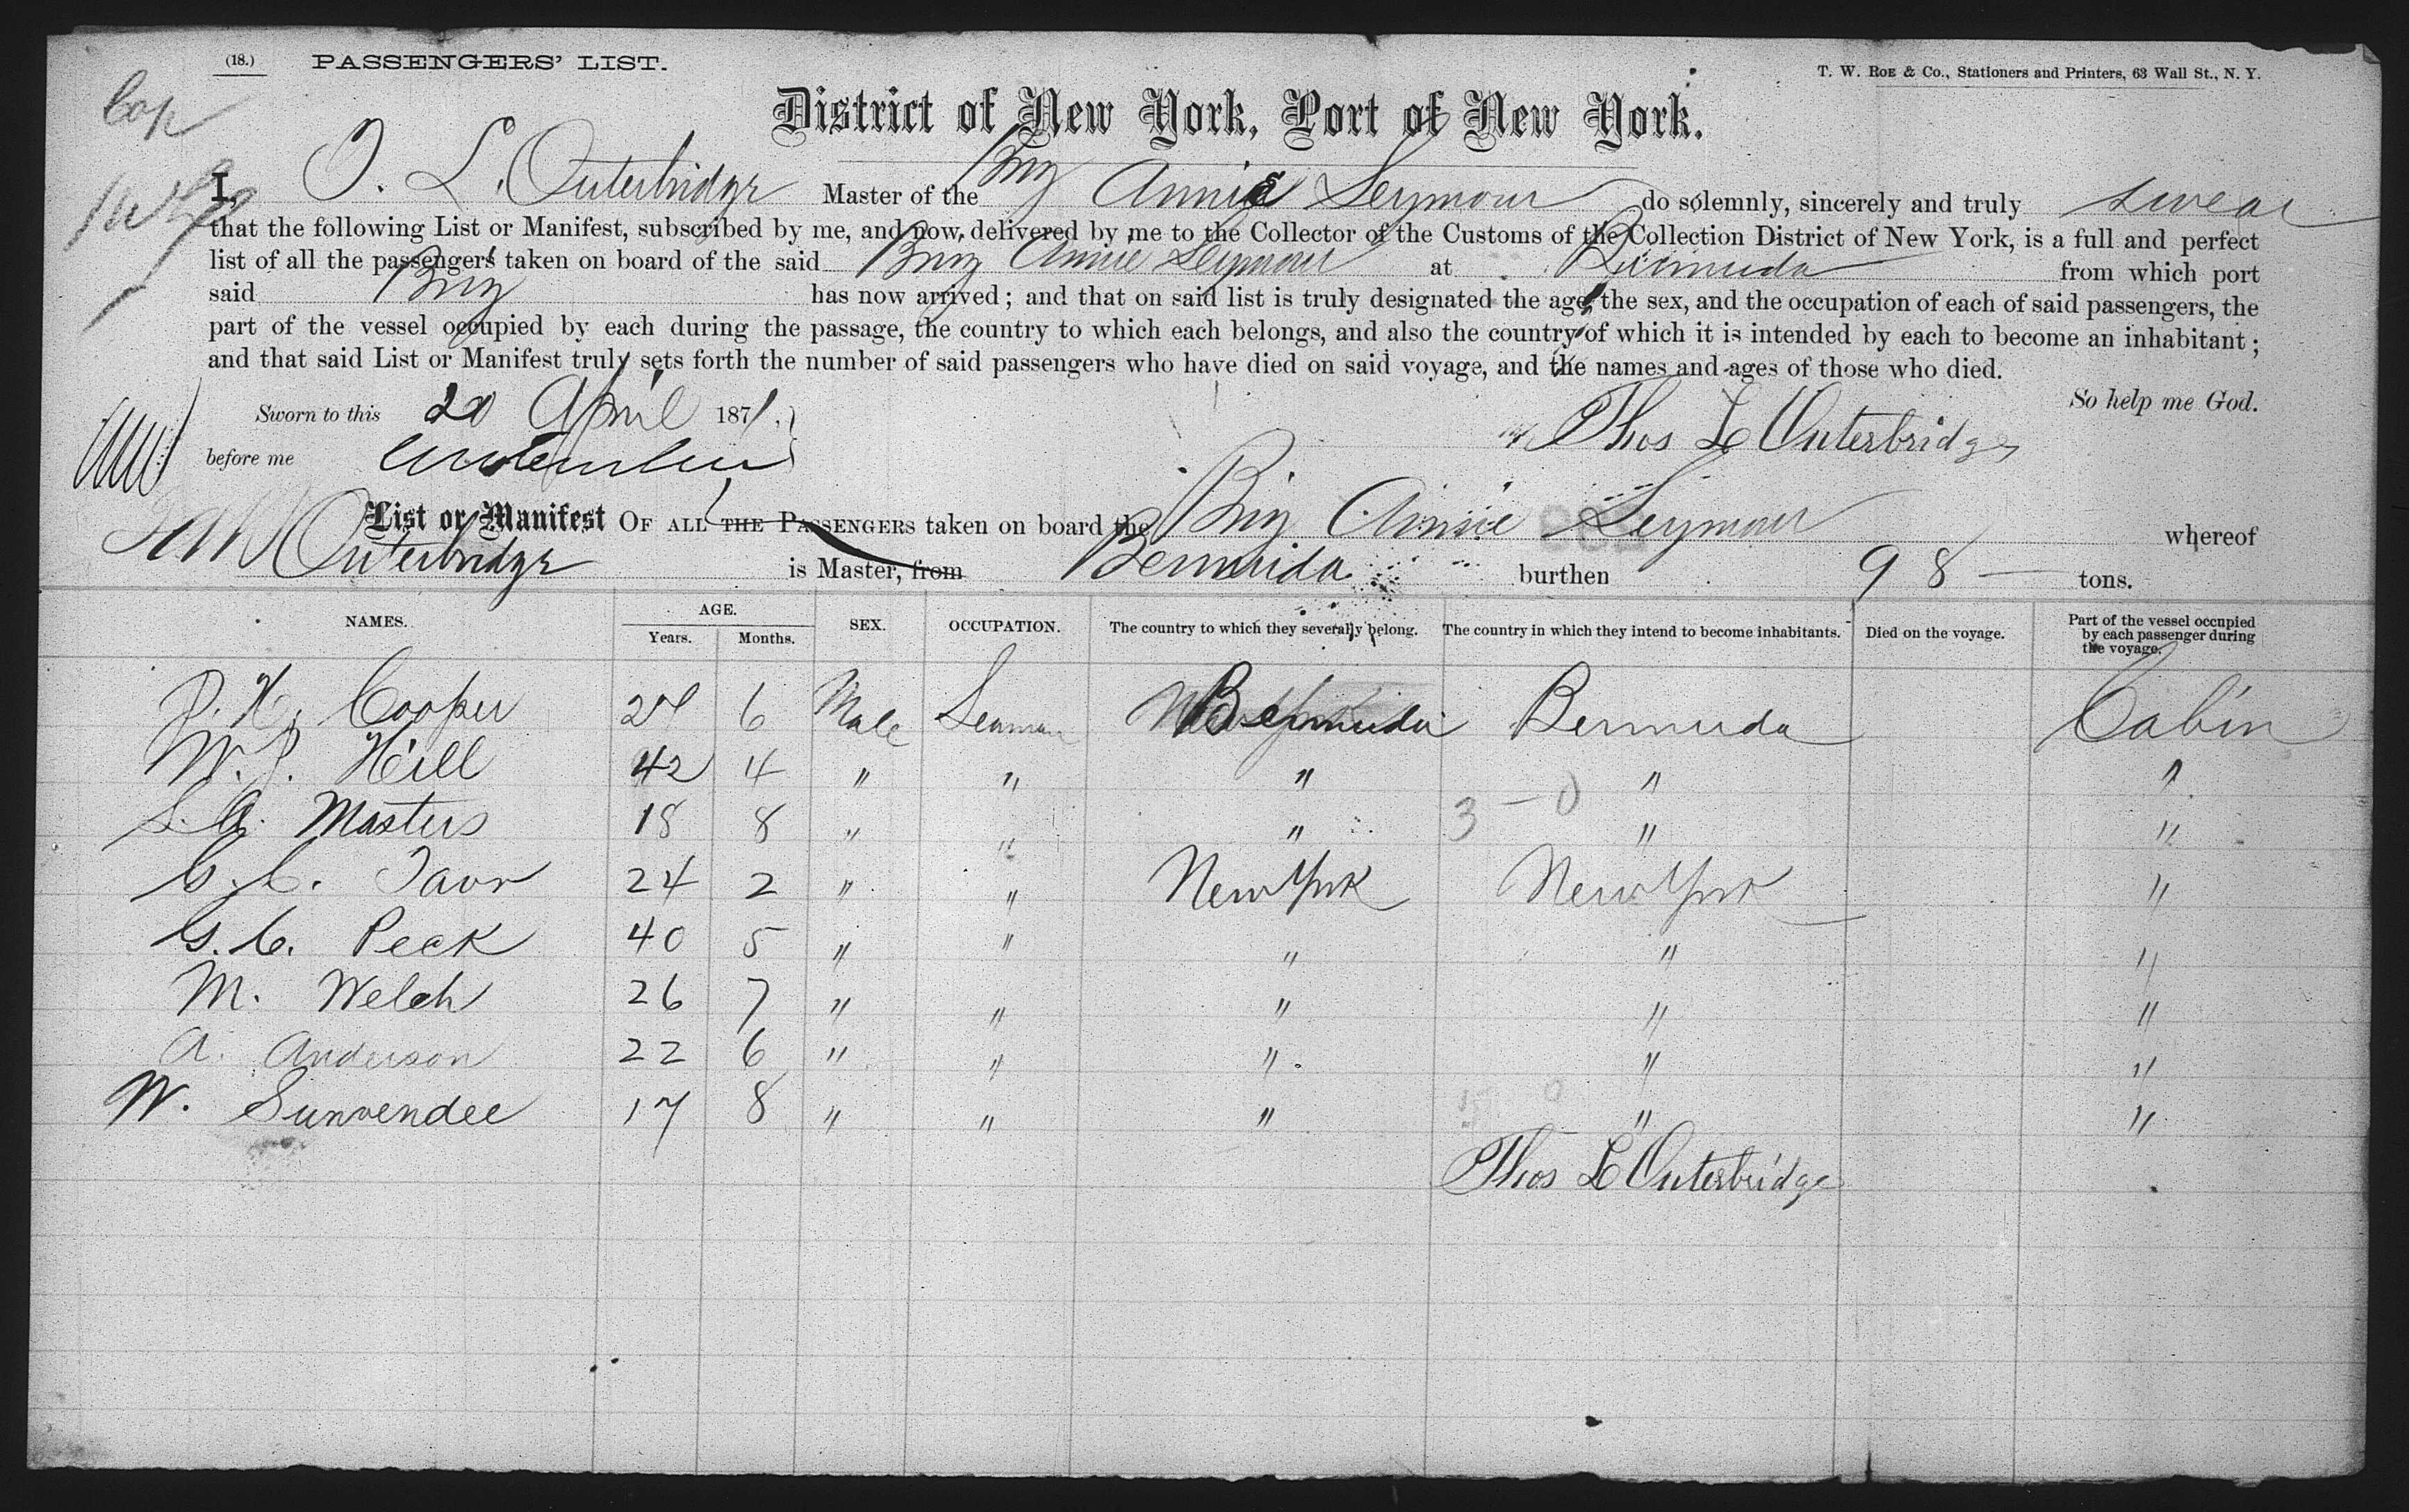 (18.) PASSENGERS' LIST.
T. W. Roe & Co., Stationers and Printers, 63 Wall St., N. Y.
Cop
District of New York, Port of New York.
I, T. L. Outerbridge Master of the Brig Annie Seymour do solemnly, sincerely and truly swear
that the following List or Manifest, subscribed by me, and now delivered by me to the Collector of the Customs of the Collection District of New York, is a full and perfect
list of all the passengers taken on board of the said Brig Annie Seymour at Bermuda from which port
said Brig has now arrived; and that on said list is truly designated the age, the sex, and the occupation of each of said passengers, the
part of the vessel occupied by each during the passage, the country to which each belongs, and also the country of which it is intended by each to become an inhabitant;
and that said List or Manifest truly sets forth the number of said passengers who have died on said voyage, and the names and ages of those who died.
So help me God.
Sworn to this 20 April 1871.
Thos L Outerbridge
before me
List or Manifest OF ALL THE PASSENGERS taken on board the Brig Annie Seymour whereof
Outerbridge is Master, from Bermuda burthen 98 — tons.
NAMES. AGE. Years. Months. SEX. OCCUPATION. The country to which they severally belong. The country in which they intend to become inhabitants. Died on the voyage. Part of the vessel occupied by each passenger during the voyage.
Cooper 24 6 Male Seaman Bermuda Bermuda Cabin
W. J. Hill 42 4 " " " " "
S. A. Masters 18 8 " " " " "
3 - 0
G. C. 24 2 " " New York New York "
G. C. Peck 40 5 " " " " "
M. Welch 26 7 " " " " "
A. Anderson 22 6 " " " " "
W. Sunvendee 17 8 " " " " "
Thos L Outerbridge